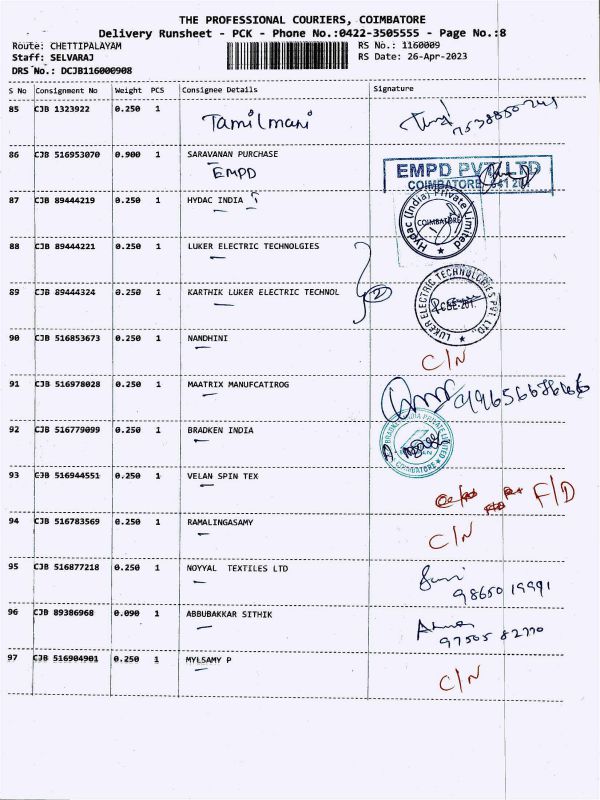 THE PROFESSIONAL COURIERS, COIMBATORE
Delivery Runsheet - PCK - Phone No.:0422-3505555 - Page No.:8
Route: CHETTIPALAYAM RS No.: 1160009
Staff: SELVARAJ RS Date: 26-Apr-2023
DRS No.: DCJB116000908
S No Consignment No Weight PCS Consignee Details Signature
85 CJB 1323922 0.250 1 Tamilmani
86 CJB 516953070 0.900 1 SARAVANAN PURCHASE
EMPD
EMPD PVT LTD
COIMBATORE
87 CJB 89444219 0.250 1 HYDAC INDIA
Hydac (India) Private Limited
COIMBATORE
88 CJB 89444221 0.250 1 LUKER ELECTRIC TECHNOLGIES
89 CJB 89444324 0.250 1 KARTHIK LUKER ELECTRIC TECHNOL
2
LUKER ELECTRIC TECHNOLOGIES PVT. LTD.
CBE-201.
90 CJB 516853673 0.250 1 NANDHINI C/N
91 CJB 516978028 0.250 1 MAATRIX MANUFCATIROG
92 CJB 516779099 0.250 1 BRADKEN INDIA
BRADKEN INDIA PRIVATE LIMITED
COIMBATORE
93 CJB 516944551 0.250 1 VELAN SPIN TEX F/D
94 CJB 516783569 0.250 1 RAMALINGASAMY C/N
95 CJB 516877218 0.250 1 NOYYAL TEXTILES LTD
9865019991
96 CJB 89386968 0.090 1 ABBUBAKKAR SITHIK
97505 82770
97 CJB 516904901 0.250 1 MYLSAMY P C/N